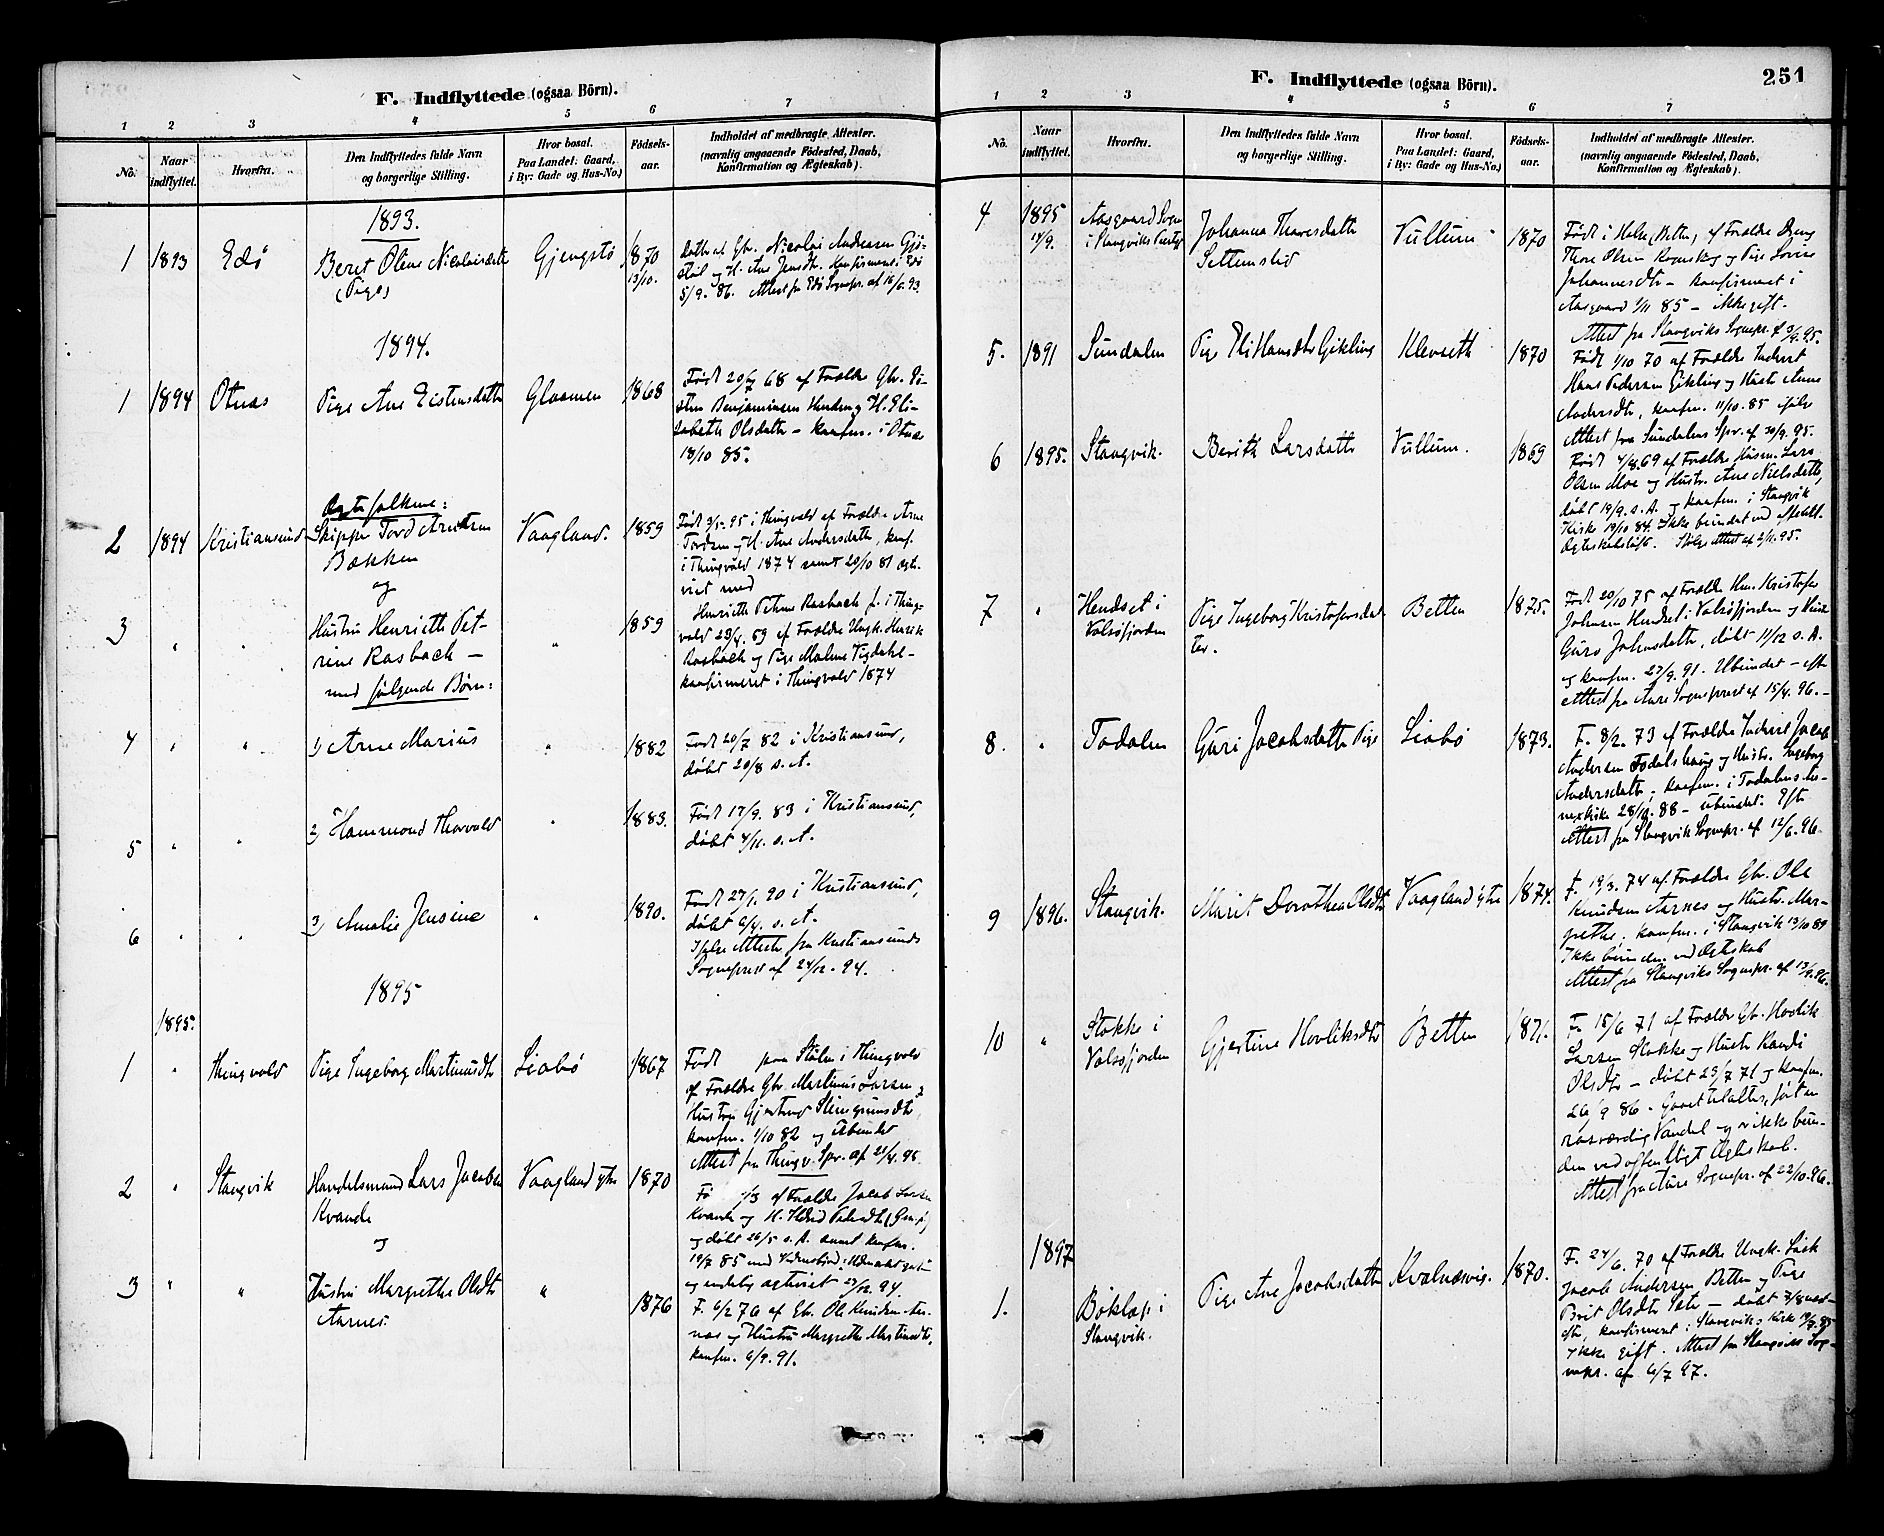 F. Indflyttede (ogsaa Börn).
1 2 3 4 5 6 7
No. Naar indflyttet. Hvorfra. Den Indflyttedes fulde Navn og borgerlige Stilling. Hvor bosat. Paa Landet: Gaard, i By: Gade og Hus-No.) Fødsels-aar. Indholdet af medbragte Attester. (navnlig angaaende Födested, Daab, Konfirmation og Ægteskab).
1893.
1 1893 Edö Beret Olene Nicolaisdatt Gjengstö 1870
(Pige) 13/10.
Datter af Gbr. Nicolai Andreasen
og H. Ane Jensdtr. Konfirmeret i Edö
5/9. 86. Attest fra Edö Sognepr. af 16/6. 93.
1894.
1 1894 Otnæs Pige Ane Eistensdatter Gloomen 1868
Född 20/7 68 af Forældre Gbr. Ei-
sten Benjaminsen og H. Eli-
sabeth Olsdatter – konfm. i Otnæs
18/10 85.
Ægtefolkene:
2 1894 Kristiansund Skipper Tord Arntsen Vaagland. 1859
Bækken
og
Född 3/5. 95 i Thingvold af Forældre Arne
Tordsen og H. Ane Andersdatter, konf.
i Thingvold 1874 samt 20/10 81 ægte-
viet med
3 " " Hustru Henriette Pet- " 1859
rine Rasbach –
med følgende Børn:
Henriette Petrine Rasbach f. i Thing-
vold 23/4. 59 af Forældre Ungk. Henrik
Rasbach og Pige Malene Tigdahl –
konfirmeret i Thingvold 1874
4 " " 1) Arne Marius " 1882
Född 20/7 82 i Kristiansund,
døbt 20/8 s. A.
5 " " 2) Hammond Thorvald " 1883.
Född 17/9. 83 i Kristiansund,
døbt 4/11. s. A.
6 " " 3) Amalie Jensine " 1890.
Född 27/1. 90 i Kristiansund,
døbt 6/4. s. A.
Ifølge Attester fra Kristiansunds
Sogneprest af 24/12. 94.
1895
1895.
1 " Thingvold Pige Ingeborg Martinusdtr Liabö 1867
Född paa Stølen i Thingvold
af Forældre Gbr. Martinus Larsen og
Hustru Gjertrud Steingrimsdtr,
konfm. 1/10 82 og Ubundet
Attest fra Thingv. Spr. af 21/4. 95
2 " Stangvik Handelsmand Lars Jacobsen Vaagland ytre 1870
Kvande
og
af Forældre Jacob Larsen
Kvande og H.
og døbt 26/5 s. A. samt konfm.
19/7 85 med
og endelig ægteviet 27/12. 94.
3 " " Hustru Margrethe Olsdtr " 1876
Aarnes
F. 6/2 76 af Gbr. Ole Knudsen Aar-
nes og Hustru Margrethe Martinsdtr,
konfm. 6/9. 91.
F. Indflyttede (ogsaa Börn). 251
1 2 3 4 5 6 7
No. Naar indflyttet. Hvorfra. Den Indflyttedes fulde Navn og borgerlige Stilling. Hvor bosat. Paa Landet: Gaard, i By: Gade og Hus-No.) Fødsels-aar. Indholdet af medbragte Attester. (navnlig angaaende Födested, Daab, Konfirmation og Ægteskab).
4 1895 Aasgaard Sogn Johanna Thoresdatter Vullum 1870
14/9. i Stangviks Prestgj. Settemslid
Född i Halse (Betten) af Forældre Dreng
Thore Olsen og Pige Lovise
Johannesdtr – konfirmeret i
Aasgaard 1/11 85 – ikke gift.
Attest fra Stangviks Sognepr. af 3/9. 95.
5. 1891 Sundalen Pige Eli Hansdtr Gikling Klevseth 1870
Född 1/10 70 af Forældre Inderst
Hans Pedersen Gikling og Hustru Anne
Andersdtr, konfm. 11/10. 85 ifølge
Attest fra Sundalens Spr. af 30/9. 95.
6 1895. Stangvik. Berith Larsdatter Vullum. 1869
Född 4/8. 69 af Forældre Husm. Lars
Olsen Moe og Hustr. Ane Nielsdatter,
døbt 19/9. s. A. og konfm. i Stangvik
Kirke 19/10 84. Ikke bundet ved offentl.
Ægteskabsløfte. Ifølge Attest af 2/11. 95.
7 " Hendset i Pige Ingeborg Kristofersdat- Betten 1875.
Valsöfjorden ter.
Född 20/10 75 af Forældre Hm. Kristofer
Johnsen Hendset i Valsöfjorden og Hustr
Guro Johnsdatter, døbt 11/12 s. A.
og konfm. 27/9. 91. Ubundet – efter
Attest fra Aure Sogneprest af 15/4. 96. –
8. " Todalen Guri Jacobsdatter Pige Liabö 1873.
F. 8/2. 73 af Forældre Inderst Jacob
Andersen Todalshaug og Hustr. Ingeborg
Andersdatter, konfm. i Todalens An-
nexkirke 28/10. 88 – ubundet. Efter
Attest fra Stangvik Sognepr. af 12/6. 96.
9 1896. Stangvik. Marit Dorothea Olsdtr Vaagland ytre 1874.
F. 19/3. 74 af Forældre Gbr. Ole
Knudsen Aarnes og Hustr. Mar-
grethe. konfm. i Stangvik 13/10 89
Ikke bunden ved Ægteskab
Attest fra Stangviks Sognepr. af 13/9. 96.
10 " Stokke i Gjertine Hovliksdtr Betten 1871.
Valsøfjorden
F. 15/6 71 af Forældre Gbr. Hovlik
Larsen Stokke og Hustr Randi
Olsdtr – døbt 23/7 71 og konfm.
26/9 86 – Gaaet til alters, ført en
rosværdig Vandel og ikke bun-
den ved offentligt Ægteskab.
Attest fra Aure Sognepr. af 22/10. 96.
1897
1. Böklep i Pige Ane Jacobsdatter Kvalnesvig. 1870.
Stangvik.
F. 24/6. 70 af Forældre Ungk.
Jacob Andersen Betten og Pige
Brit Olsdtr Sæte – døbt 3/8
efter, konfirmeret i Stangviks Kirke
Ikke gift. Attest fra Stangviks Sog-
nepr. af 6/7 97.